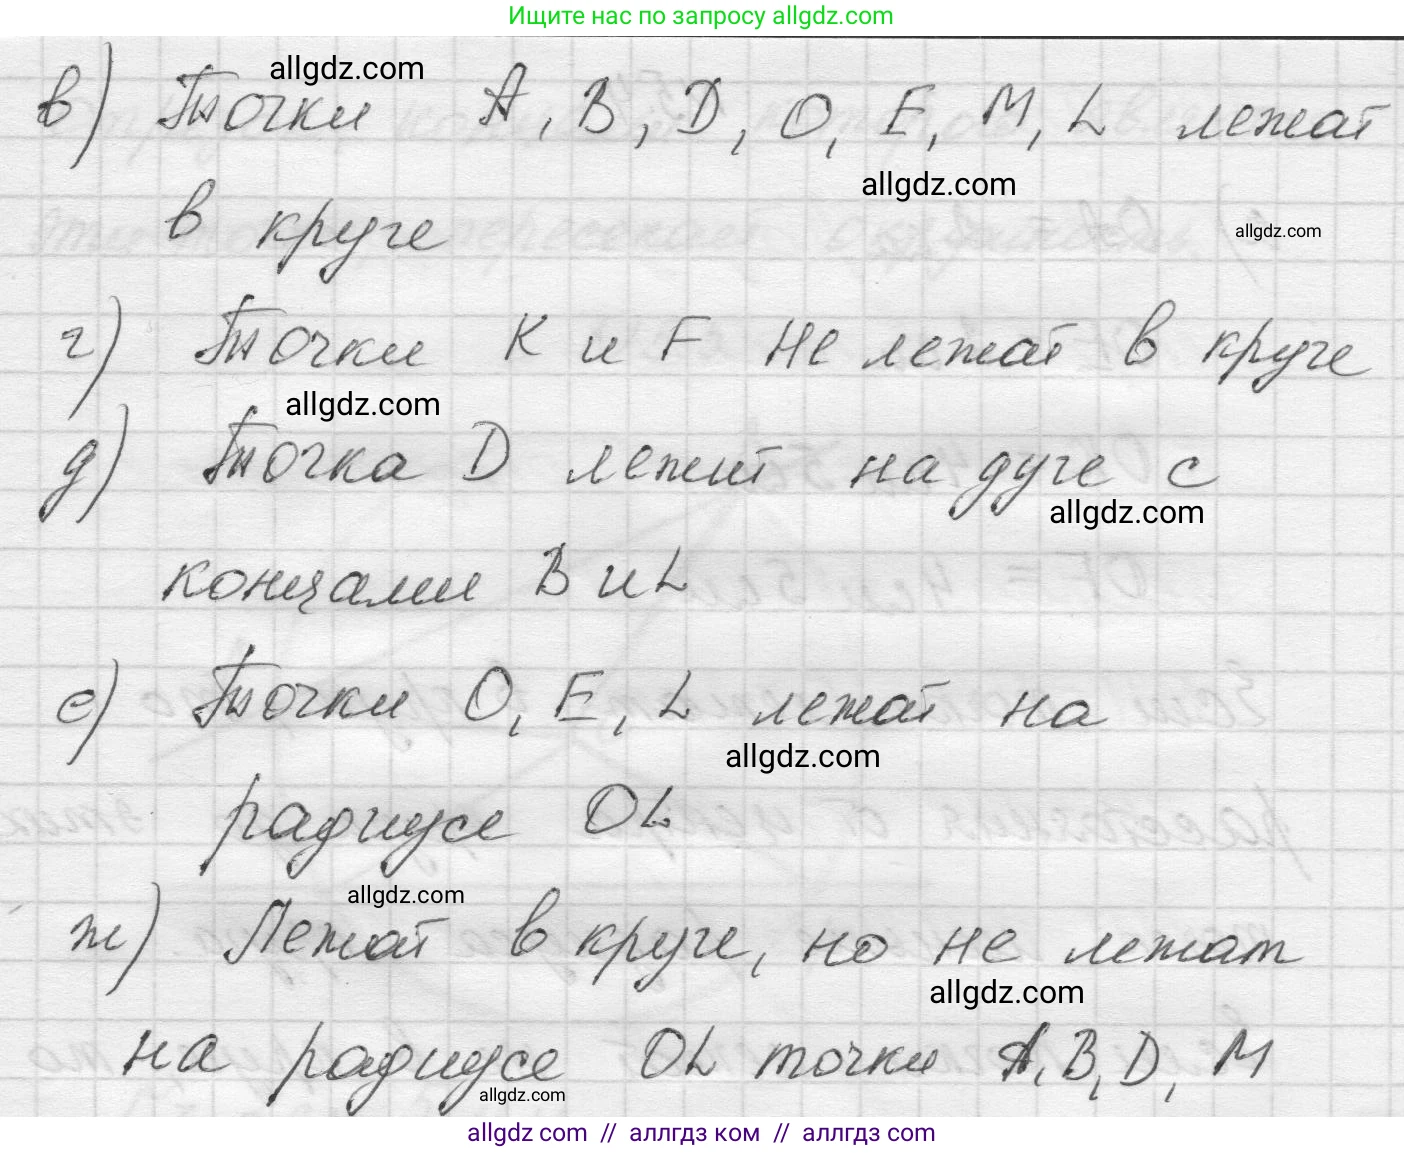 Ищите нас по запросу allgdz.com
allgdz.com
в) Точки A, B, D, O, E, M, L лежат
allgdz.com
в круге
allgdz.com
г) Точки K и F не лежат в круге
allgdz.com
д) Точка D лежит на дуге с
allgdz.com
концами B и L
е) Точки O, E, L лежат на
allgdz.com
радиусе OL
allgdz.com
ж) Лежат в круге, но не лежат
allgdz.com
на радиусе OL точки A, B, D, M
allgdz.com
allgdz com // аллгдз ком // аллгдз com